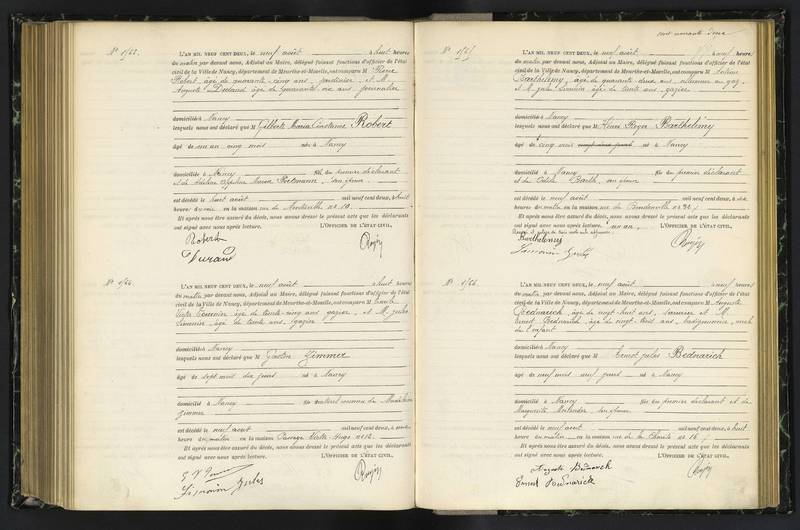 Nº 1163.
L'AN MIL NEUF CENT DEUX, le neuf août à huit heures
du matin par devant nous, Adjoint au Maire, délégué faisant fonctions d'officier de l'état
civil de la Ville de Nancy, département de Meurthe-et-Moselle, ont comparu M Pierre
Robert, âgé de quarante cinq ans, et M.
Auguste Durand âgé de quarante six ans journalier
domiciliés à Nancy
lesquels nous ont déclaré que M Gilberte Maria Constance Robert
âgé de un an cinq mois né à Nancy
domicilié à Nancy fils du premier déclarant
et de Maria son épouse
est décédé le huit août mil neuf cent deux, à huit
heures du soir en la maison rue de No 10.
Et après nous être assuré du décès, nous avons dressé le présent acte que les déclarants
ont signé avec nous après lecture. L'OFFICIER DE L'ÉTAT CIVIL,
Robert
Durand
Nº 1164.
L'AN MIL NEUF CENT DEUX, le neuf août à huit heures
du matin par devant nous, Adjoint au Maire, délégué faisant fonctions d'officier de l'état
civil de la Ville de Nancy, département de Meurthe-et-Moselle, ont comparu M
Victor âgé de trente-cinq ans gazier, et M. Jules
Simonin, âgé de trente ans, gazier
domiciliés à Nancy
lesquels nous ont déclaré que M Gaston Zimmer
âgé de sept mois dix jours né à Nancy
domicilié à Nancy fils naturel reconnu de
Zimmer
est décédé le neuf août mil neuf cent deux, à
heures du matin en la maison Passage Victor Hugo no 12.
Et après nous être assuré du décès, nous avons dressé le présent acte que les déclarants
ont signé avec nous après lecture. L'OFFICIER DE L'ÉTAT CIVIL,
Simonin Jules
cent soixante deux
Nº 1165
L'AN MIL NEUF CENT DEUX, le neuf août à neuf heures
du matin par devant nous, Adjoint au Maire, délégué faisant fonctions d'officier de l'état
civil de la Ville de Nancy, département de Meurthe-et-Moselle, ont comparu M Antoine
Barthélémy, âgé de quarante deux ans, allumeur au gaz,
et M. Jules Simonin âgé de trente ans, gazier
domiciliés à Nancy
lesquels nous ont déclaré que M Henri Roger Barthélémy
âgé de cinq mois né à Nancy
domicilié à Nancy fils du premier déclarant
et de Odile Barth, son épouse
est décédé le neuf août mil neuf cent deux, à six
heures du matin en la maison rue de No 92
Et après nous être assuré du décès, nous avons dressé le présent acte que les déclarants
ont signé avec nous après lecture. un an. L'OFFICIER DE L'ÉTAT CIVIL,
Barthélémy
Simonin Jules
Nº 1166.
L'AN MIL NEUF CENT DEUX, le neuf août à neuf heures
du matin par devant nous, Adjoint au Maire, délégué faisant fonctions d'officier de l'état
civil de la Ville de Nancy, département de Meurthe-et-Moselle, ont comparu M Auguste
Bednarick, âgé de vingt-huit ans, serrurier et M.
Ernest Bednarick, âgé de vingt-trois ans, badigeonneur, oncle
de l'enfant
domiciliés à Nancy
lesquels nous ont déclaré que M Ernest Jules Bednarick
âgé de neuf mois neuf jours né à Nancy
domicilié à Nancy fils du premier déclarant et de
Marguerite son épouse
est décédé le neuf août mil neuf cent deux, à huit
heures du matin en la maison rue de la Charité No 16
Et après nous être assuré du décès, nous avons dressé le présent acte que les déclarants
ont signé avec nous après lecture. L'OFFICIER DE L'ÉTAT CIVIL,
Auguste Bednarick
Ernest Bednarick